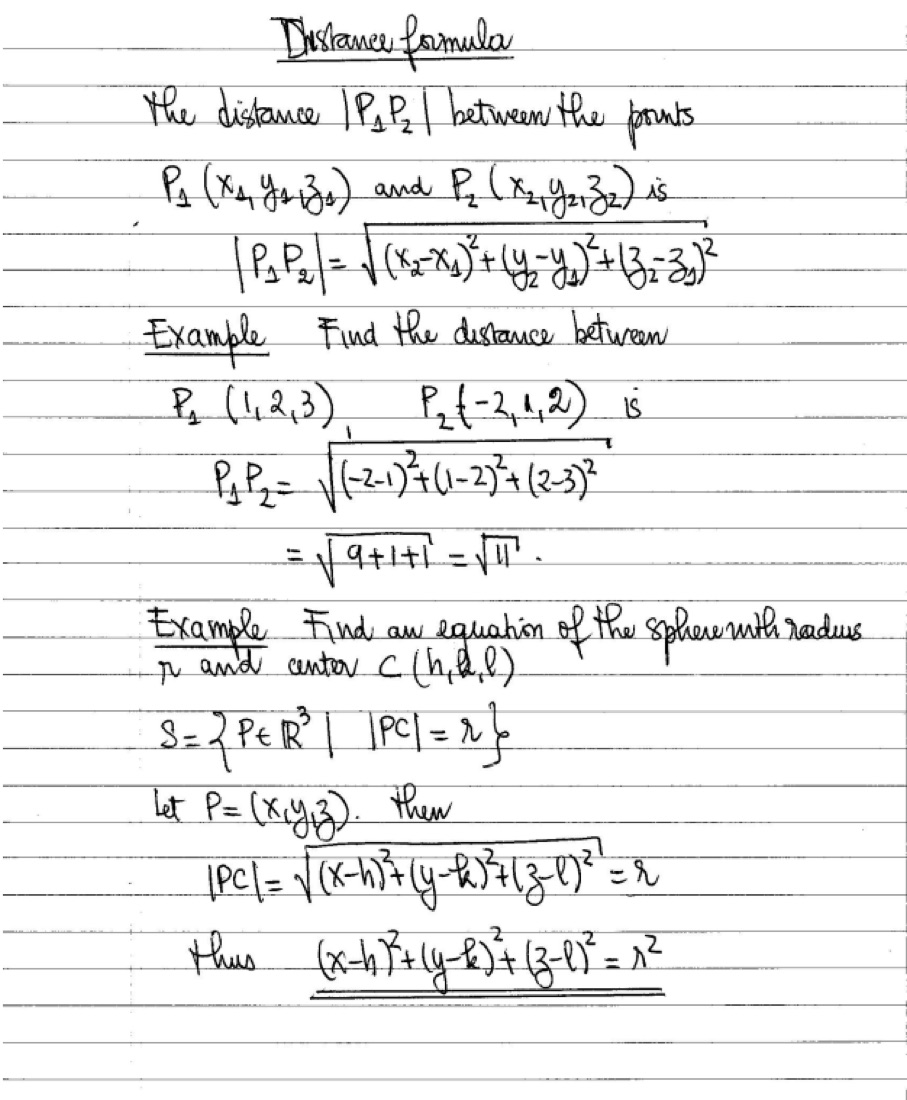 Distance formula
The distance |P₁P₂| between the points
P₁ (x₁, y₁, z₁) and P₂ (x₂, y₂, z₂) is
|P₁P₂| = √((x₂-x₁)² + (y₂-y₁)² + (z₂-z₁)²)
Example Find the distance between
P₁ (1, 2, 3), P₂ (-2, 1, 2) is
P₁P₂ = √((-2-1)² + (1-2)² + (2-3)²)
= √(9+1+1) = √11.
Example Find an equation of the sphere with radius
r and center C (h, k, l)
S = { P ∈ ℝ³ | |PC| = r }
Let P = (x, y, z). Then
|PC| = √((x-h)² + (y-k)² + (z-l)²) = r
thus (x-h)² + (y-k)² + (z-l)² = r²